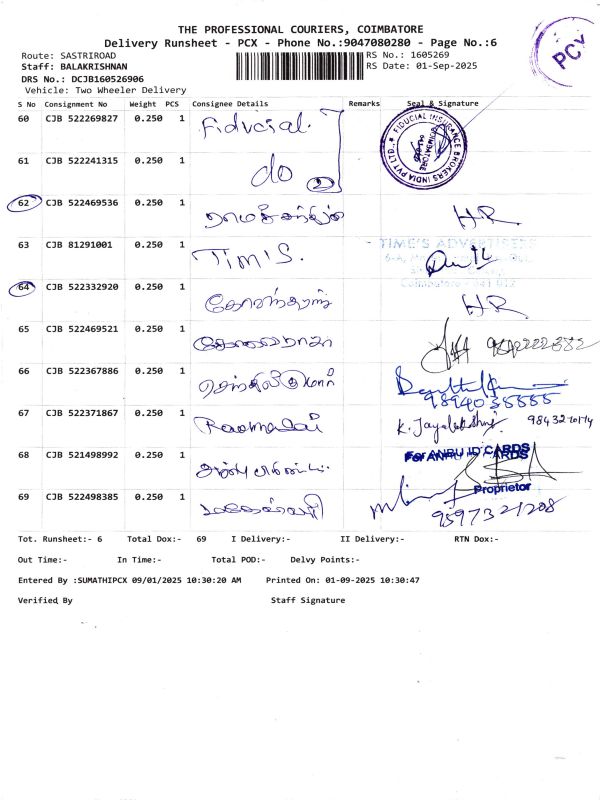 THE PROFESSIONAL COURIERS, COIMBATORE
Delivery Runsheet - PCX - Phone No.:9047080280 - Page No.:6
Route: SASTRIROAD
RS No.: 1605269
Staff: BALAKRISHNAN
RS Date: 01-Sep-2025
DRS No.: DCJB160526906
Vehicle: Two Wheeler Delivery
PCX
S No Consignment No Weight PCS Consignee Details Remarks Seal & Signature
60 CJB 522269827 0.250 1 Fiducial.
FIDUCIAL INSURANCE BROKERS INDIA PVT LTD., COIMBATORE
61 CJB 522241315 0.250 1 do 2
62 CJB 522469536 0.250 1 HR
63 CJB 81291001 0.250 1 TIM'S.
TIME'S ADVERTISERS
64 CJB 522332920 0.250 1 HR
65 CJB 522469521 0.250 1
66 CJB 522367886 0.250 1 செந்தில்குமார்
67 CJB 522371867 0.250 1 K. Jayalakshmi
68 CJB 521498992 0.250 1 அன்பு
For ANBU ID CARDS
Proprietor
69 CJB 522498385 0.250 1 9597321208
Tot. Runsheet:- 6 Total Dox:- 69 I Delivery:- II Delivery:- RTN Dox:-
Out Time:- In Time:- Total POD:- Delvy Points:-
Entered By :SUMATHIPCX 09/01/2025 10:30:20 AM Printed On: 01-09-2025 10:30:47
Verified By Staff Signature